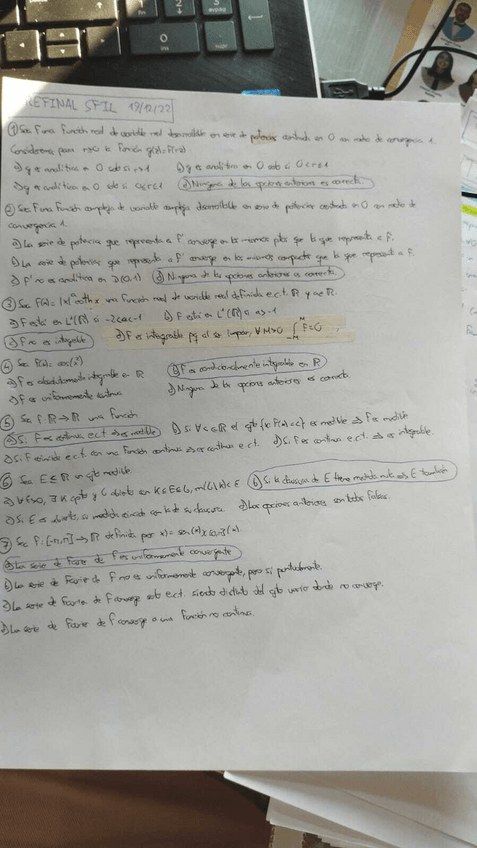 REFINAL SFIL 19/12/22
① Sea F una función real de variable real desarrollable en serie de potencias centrada en 0 con radio de convergencia 1.
Consideremos para r>0 la función g(x)=F(rx)
a) g es analítica en 0 solo si r>1 b) g es analítica en 0 solo si 0<r≤1
c) g es analítica en 0 solo si 0≤r≤1 d) Ninguna de las opciones anteriores es correcta.
② Sea F una función compleja de variable compleja desarrollable en serie de potencias centrada en 0 con radio de
convergencia 1.
a) La serie de potencias que representa a F' converge en los mismos ptos que la que representa a F.
b) La serie de potencias que representa a F' converge en los mismos compactos que la que representa a F.
c) F' no es analítica en D(0,1) d) Ninguna de las opciones anteriores es correcta.
③ Sea F(x)= una función real de variable real definida e.c.t. ℝ y a∈ℝ.
a) F está en L¹(ℝ) si -2<a<-1 b) F está en L¹(ℝ) si a>-1
c) F no es integrable d) F es integrable pq al ser impar, ∀M>0 ∫F=0
④ Sea F(x)= cos(x²)
a) F es absolutamente integrable en ℝ b) F es condicionalmente integrable en ℝ
c) F es uniformemente continua d) Ninguna de las opciones anteriores es correcta.
⑤ Sea F:ℝ→ℝ una función
a) Si F es continua e.c.t ⇒ es medible b) Si ∀c∈ℝ el cjto {x: F(x)=c} es medible ⇒ F es medible
c) Si F coincide e.c.t con una función continua ⇒ es continua e.c.t. d) Si F es continua e.c.t. ⇒ es integrable
⑥ Sea E⊆ℝ un cjto medible
a) ∀ε>0, ∃ K cpto y G abierto con K⊆E⊆G, m(G\K)<ε b) Si la clausura de E tiene medida nula ⇒ E también
c) Si E es abierto, su medida coincide con la de su clausura. d) Las opciones anteriores son todas falsas.
⑦ Sea F:[-π,π]→ℝ definida por
a) La serie de Fourier de F es uniformemente convergente
b) La serie de Fourier de F no es uniformemente convergente, pero sí puntualmente.
c) La serie de Fourier de F converge solo e.c.t. siendo distinto del cjto vacío donde no converge.
d) La serie de Fourier de F converge a una función no continua.